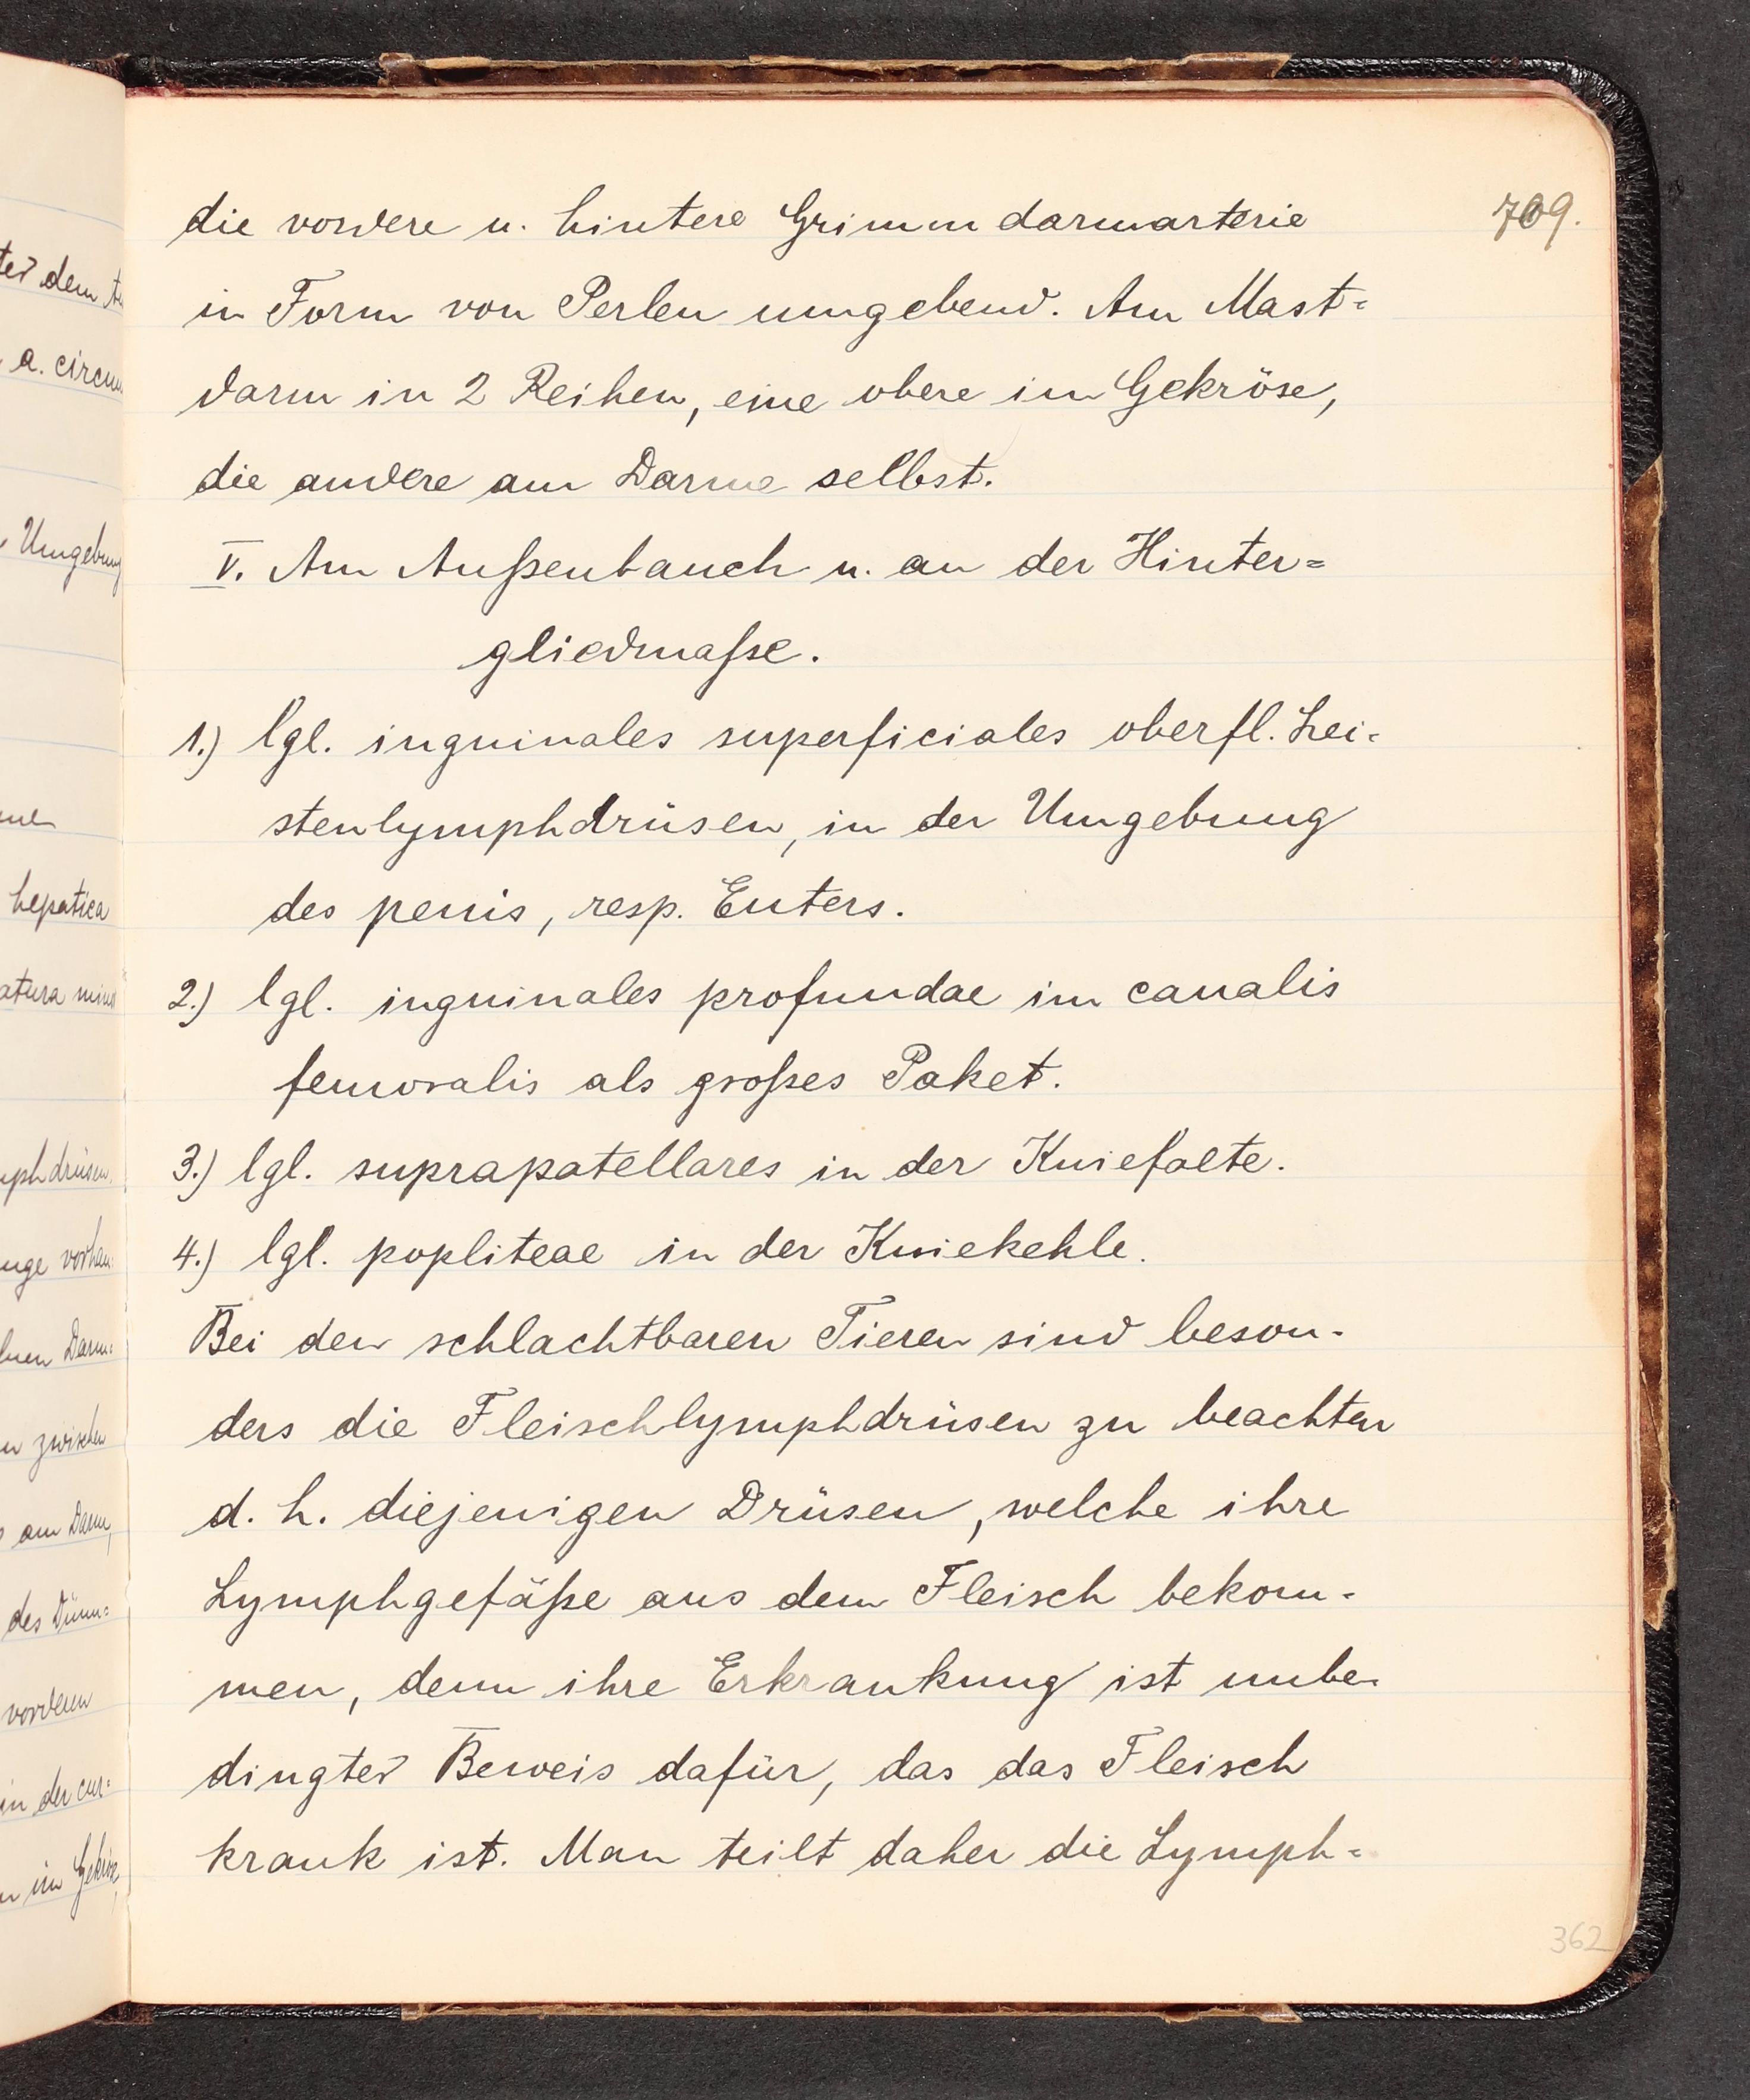 709.
die vordere u. hintere Grimmdarmarterie
in Form von Perlen umgebend. Am Mast=
darm in 2 Reihen, eine obere im Gekröse,
die andere am Darme selbst.
V. Am Außenbauch u. an der Hinter=
gliedmaße.
1.) lgl. inguinales superficiales oberfl. Lei-
stenlymphdrüsen, in der Umgebung
des penis, resp. Euters.
2.) lgl. inguinales profundae im canalis
femoralis als großes Paket.
3.) lgl. suprapatellares in der Kniefalte.
4.) lgl. popliteae in der Kniekehle.
Bei den schlachtbaren Tieren sind beson-
ders die Fleischlymphdrüsen zu beachten
d. h. diejenigen Drüsen, welche ihre
Lymphgefäße aus dem Fleisch bekom-
men, denn ihre Erkrankung ist unbe-
dingter Beweis dafür, das das Fleisch
krank ist. Man teilt daher die Lymph=
362
dem
a. circum
Umgebung
hepatica
zwischen
am Darm,
des Dünn=
vorderen
in der cur=
im Gekröse,